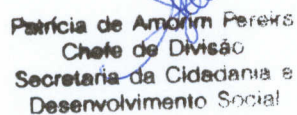 Patrícia de Amorim Pereira
Chefe de Divisão
Secretaria da Cidadania e
Desenvolvimento Social